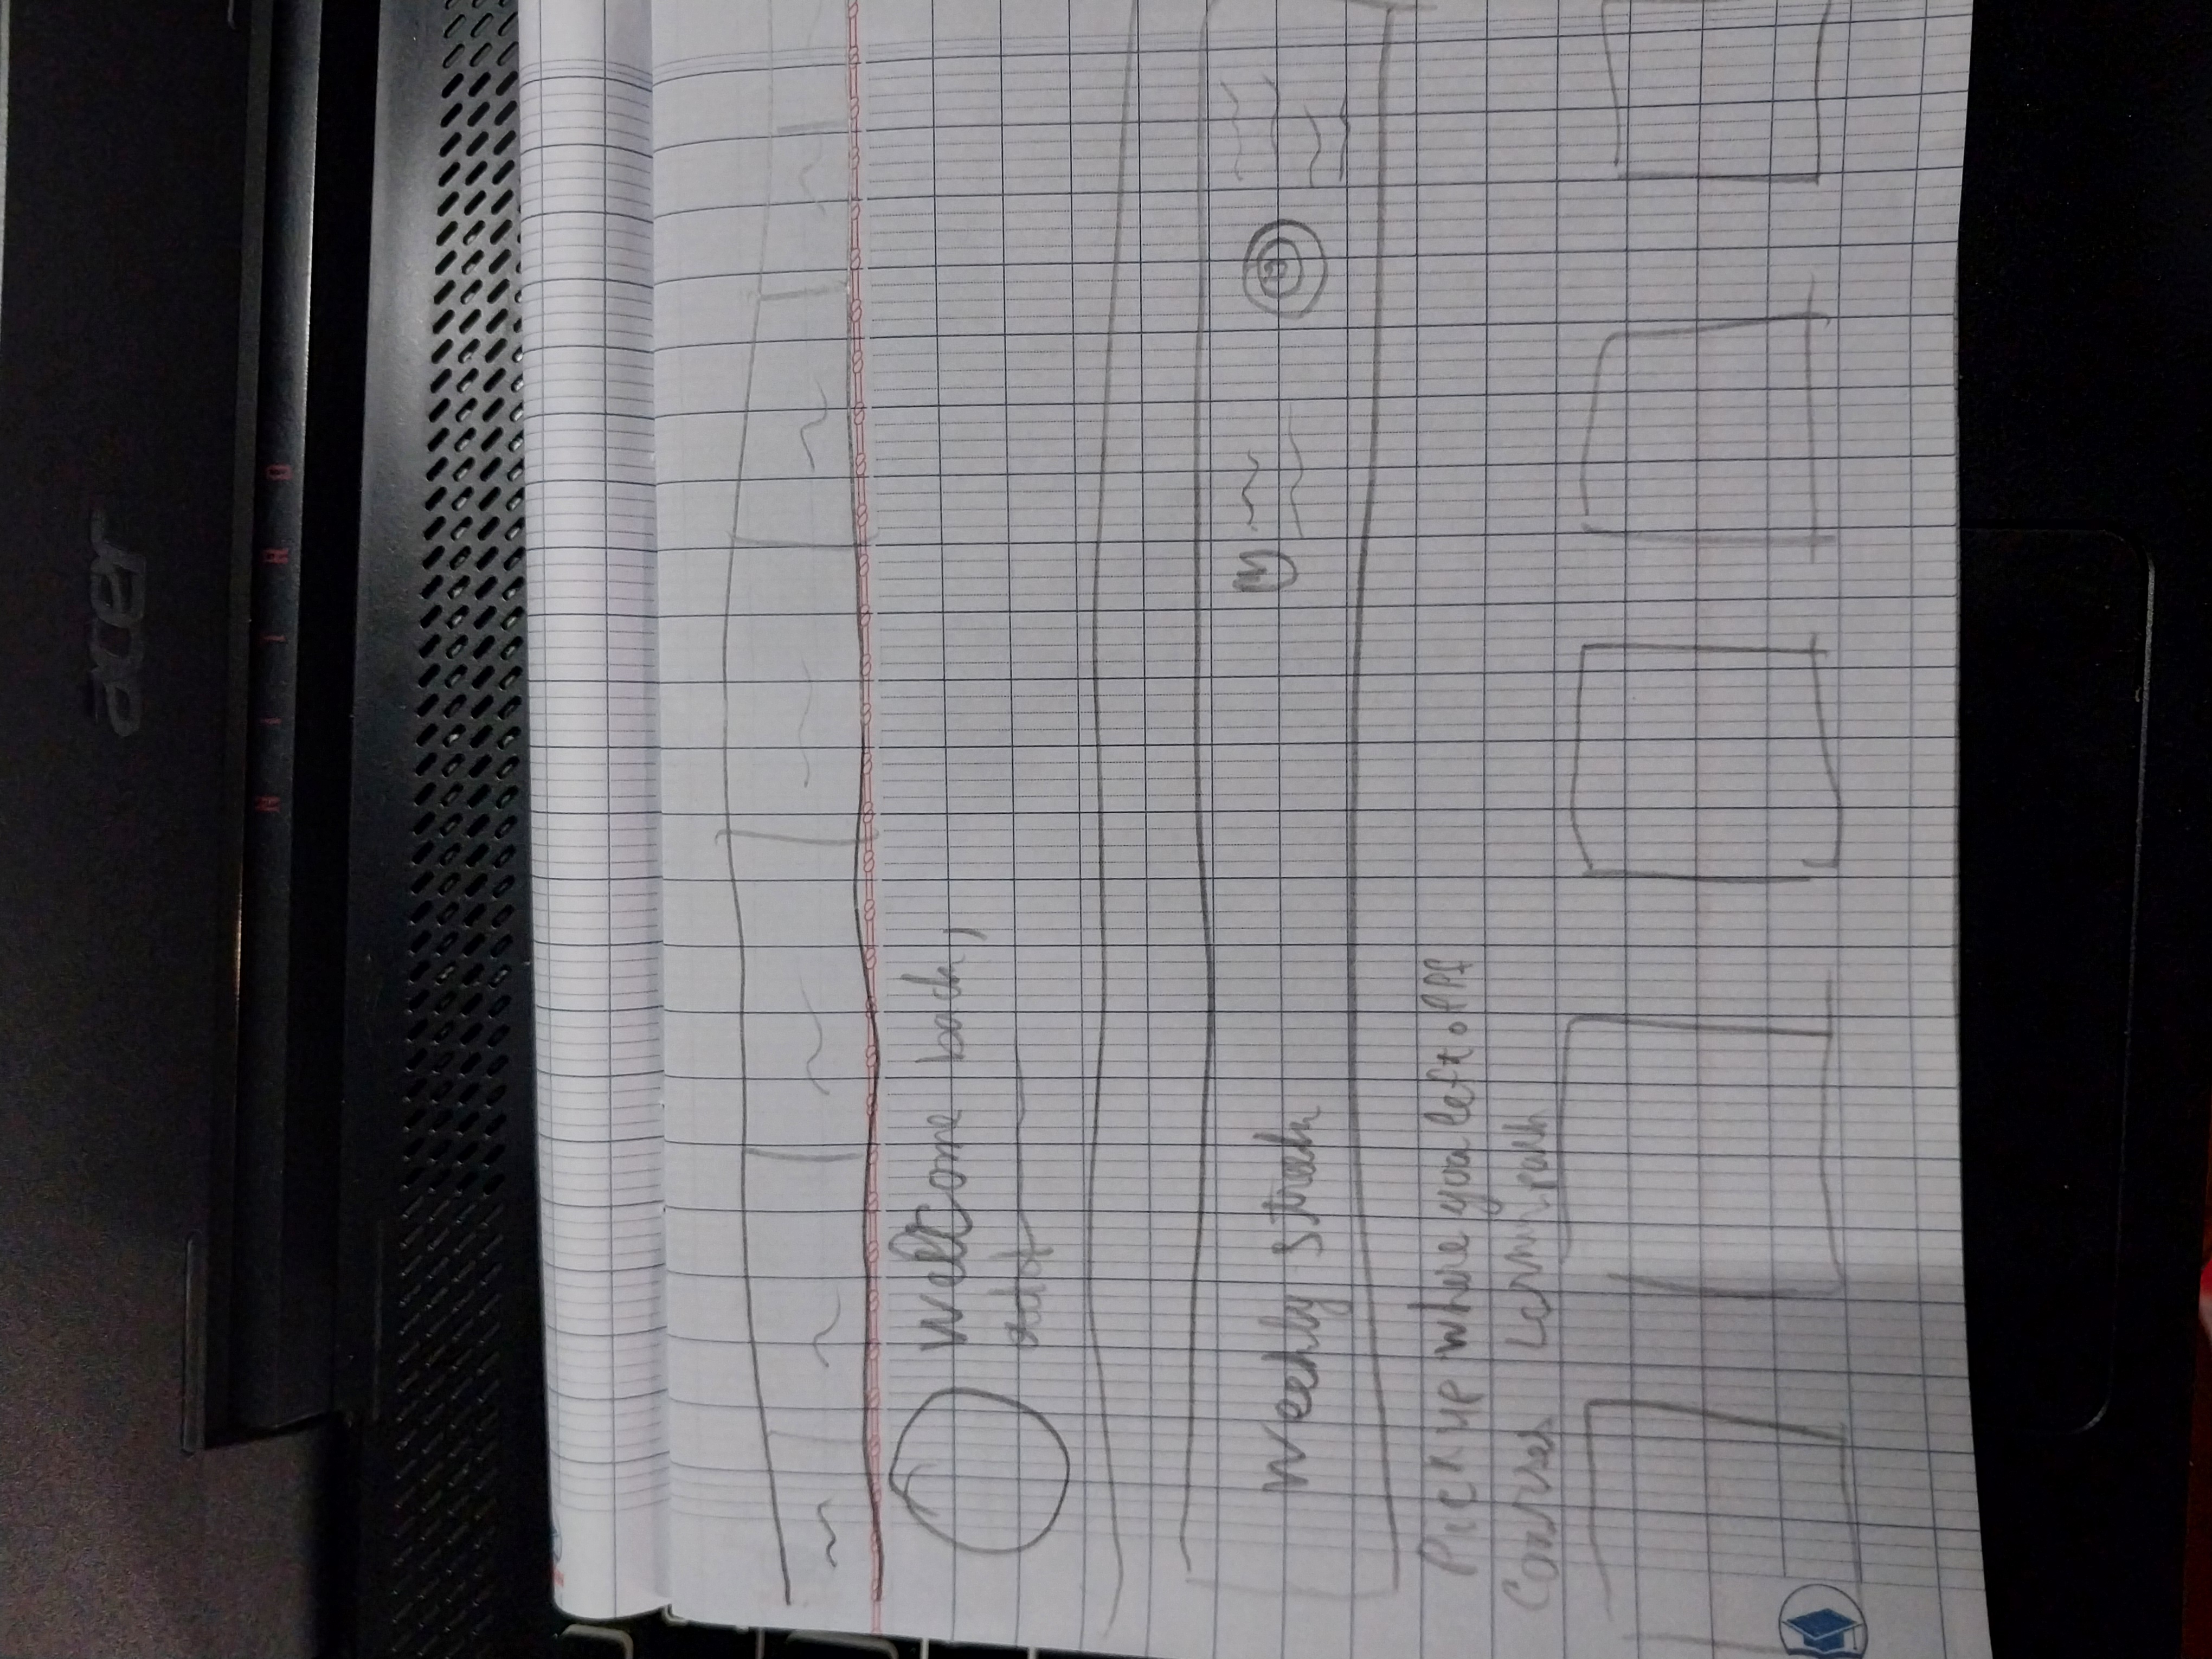 acer
NITRO
Welcome back,
add
Weekly streak
Pick up where you left off
Courses Lernin path